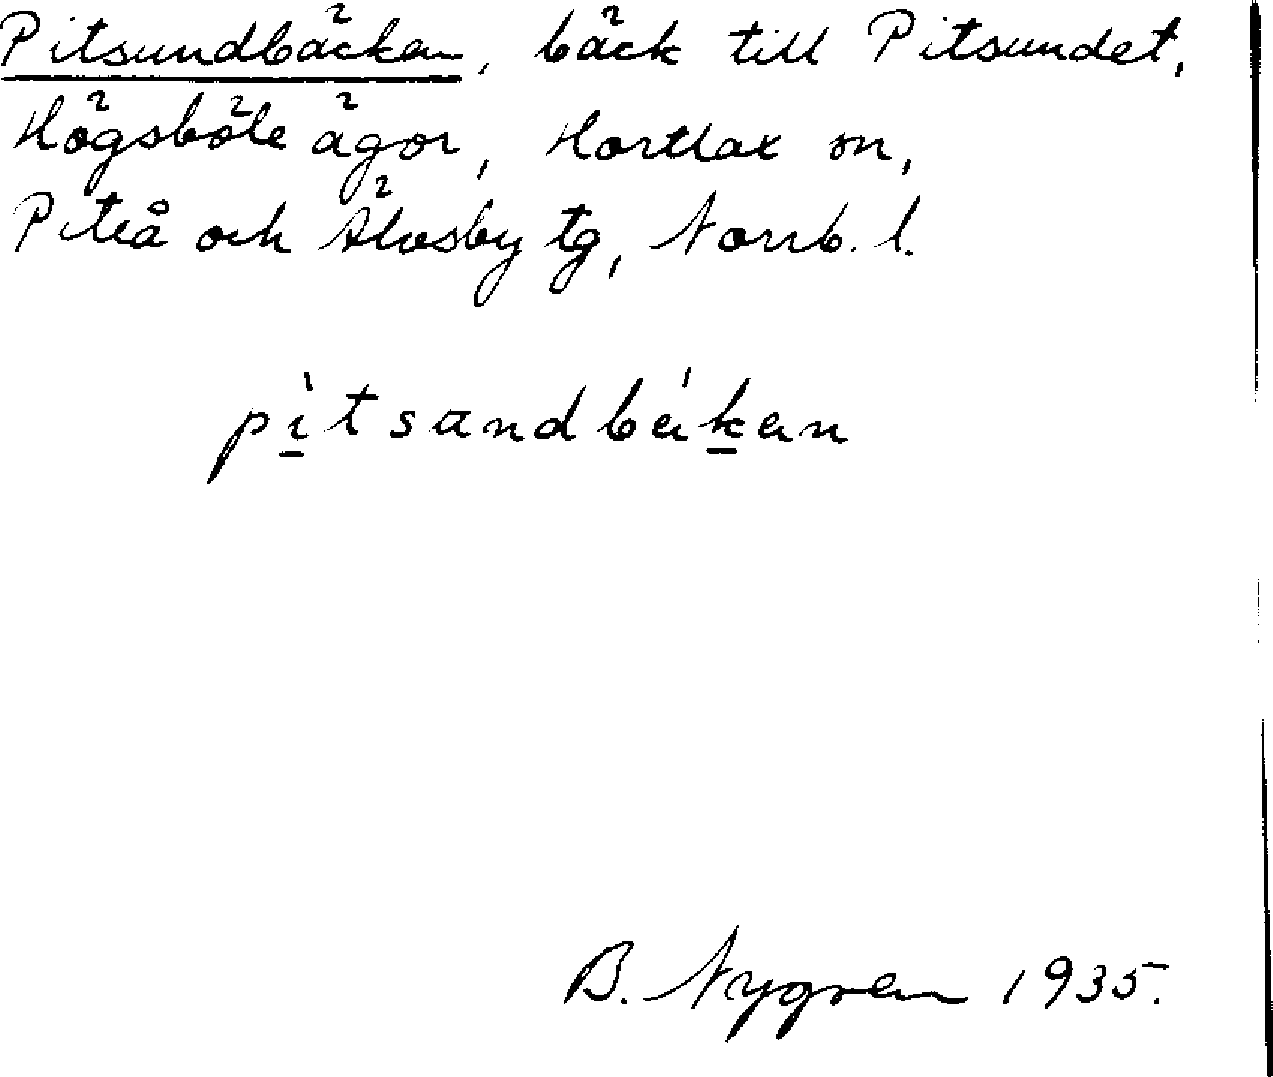 Pitsundbäcken, bäck till Pitsundet,
Högsböle ägor, Hortlax sn,
Piteå och Älvsby tg, Norrb. l.
pìtsandbákan
B. Nygren 1935.